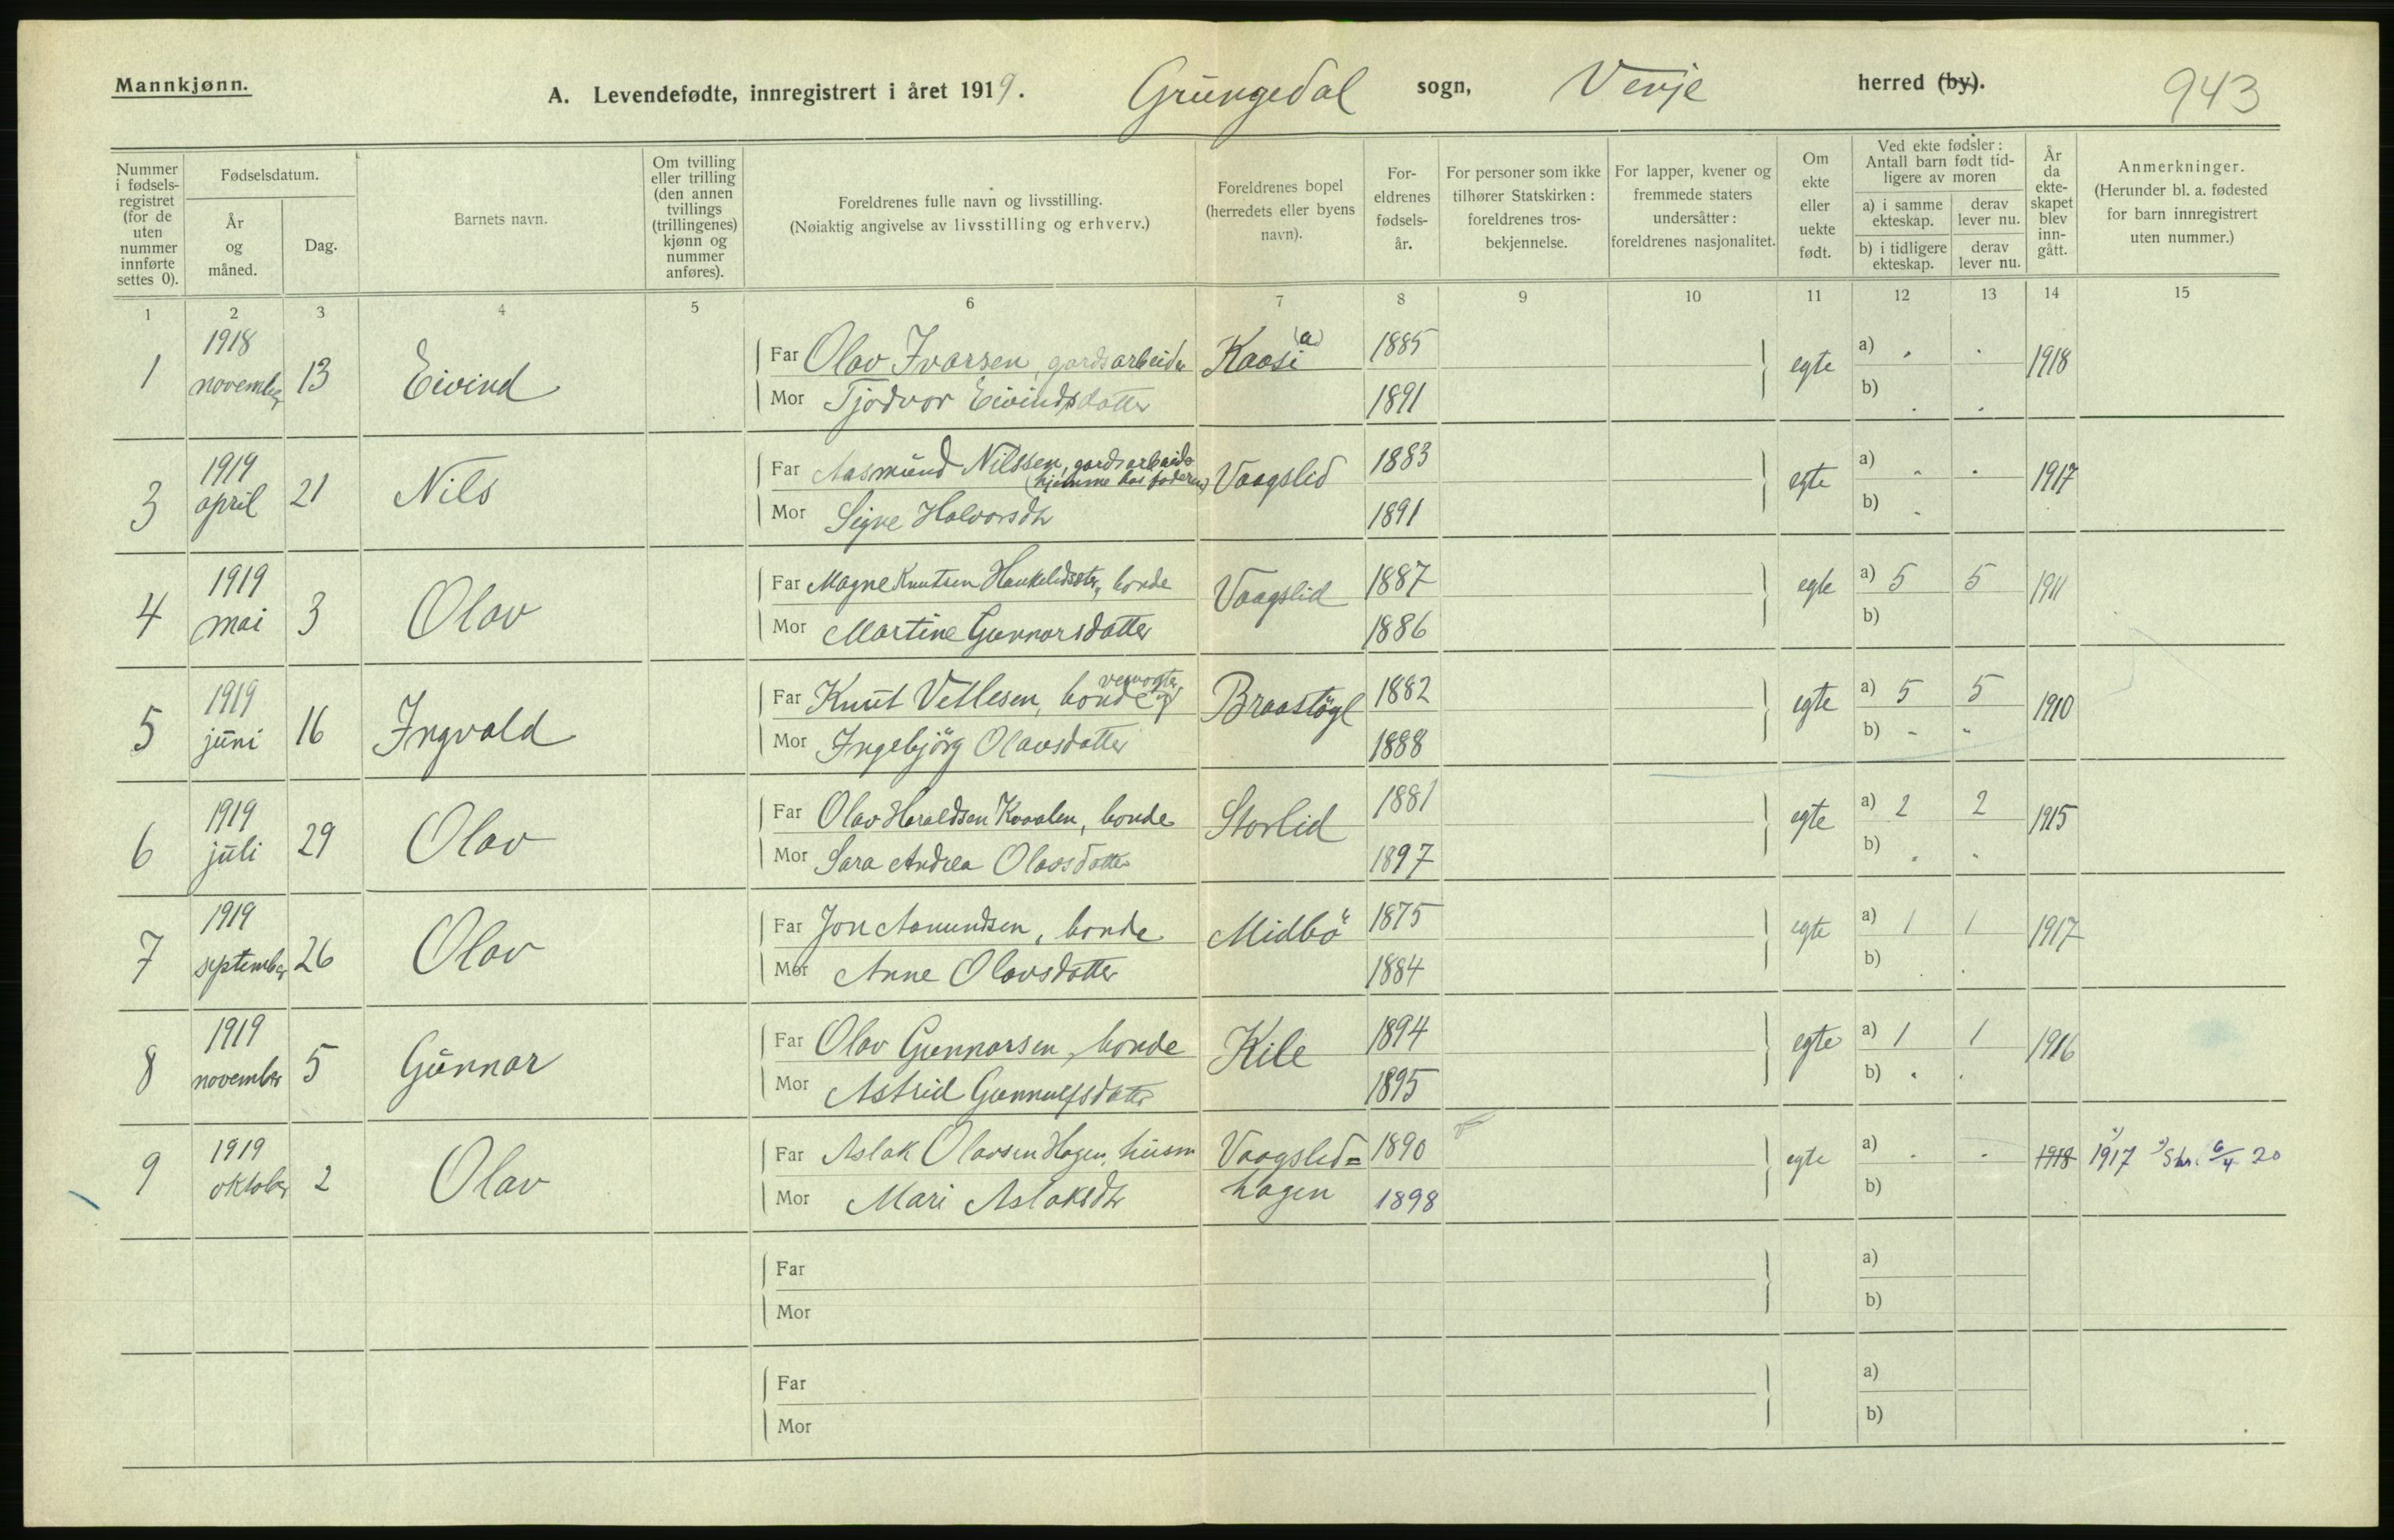 Mannkjønn.
A. Levendefødte, innregistrert i året 1919. Grungedal sogn, Vinje herred (by). 943
Nummer i fødsels-registret (for de uten nummer innførte settes 0).
Fødselsdatum.
År og måned.
Dag.
Barnets navn.
Om tvilling eller trilling (den annen tvillings (trillingenes) kjønn og nummer anføres).
Foreldrenes fulle navn og livsstilling.
(Nøiaktig angivelse av livsstilling og erhverv.)
Foreldrenes bopel (herredets eller byens navn).
For-eldrenes fødsels-år.
For personer som ikke tilhører Statskirken: foreldrenes tros-bekjennelse.
For lapper, kvener og fremmede staters undersåtter: foreldrenes nasjonalitet.
Om ekte eller uekte født.
Ved ekte fødsler: Antall barn født tid-ligere av moren
a) i samme ekteskap. derav lever nu.
b) i tidligere ekteskap. derav lever nu.
År da ekte-skapet blev inn-gått.
Anmerkninger.
(Herunder bl. a. fødested for barn innregistrert uten nummer.)
1 2 3 4 5 6 7 8 9 10 11 12 13 14 15
1 1918 november 13 Eivind Far Olav Ivarsen, gardsarbeider Kaasi (a) 1885 egte a) . . 1918
Mor Tjodvor Eivindsdatter 1891 b) . .
3 1919 april 21 Nils Far Aasmund Nilssen, gardsarbeide (hjemme hos faderen) Vaagslid 1883 egte a) . . 1917
Mor Signe Halvorsdtr 1891 b) .
4 1919 mai 3 Olav Far Magne Knutsen Haukelidsæter, bonde Vaagslid 1887 egte a) 5 5 1911
Mor Martine Gunnarsdatter 1886 b)
5 1919 juni 16 Ingvald Far Knut Vetlesen, bonde og veivogter Braastögl 1882 egte a) 5 5 1910
Mor Ingebjörg Olavsdatter 1888 b) - -
6 1919 juli 29 Olav Far Olav Haraldsen Kvaalen, bonde Storlid 1881 egte a) 2 2 1915
Mor Sara Andrea Olavsdatter 1897 b) . .
7 1919 september 26 Olav Far Jon Aamundsen, bonde Midbö 1875 egte a) 1 1 1917
Mor Anne Olavsdatter 1884 b) . .
8 1919 november 5 Gunnar Far Olav Gunnarsen, bonde Kile 1894 egte a) 1 1 1916
Mor Astrid Gunnulfsdatter 1895 b) . .
9 1919 oktober 2 Olav Far Aslak Olavsen Hagen, husm Vaagslid= 1890 egte a) . . 1918 1) 1917 1) Skr. 6/4 20
Mor Mari Aslaksdtr hagen 1898 b)
Far a)
Mor b)
Far a)
Mor b)